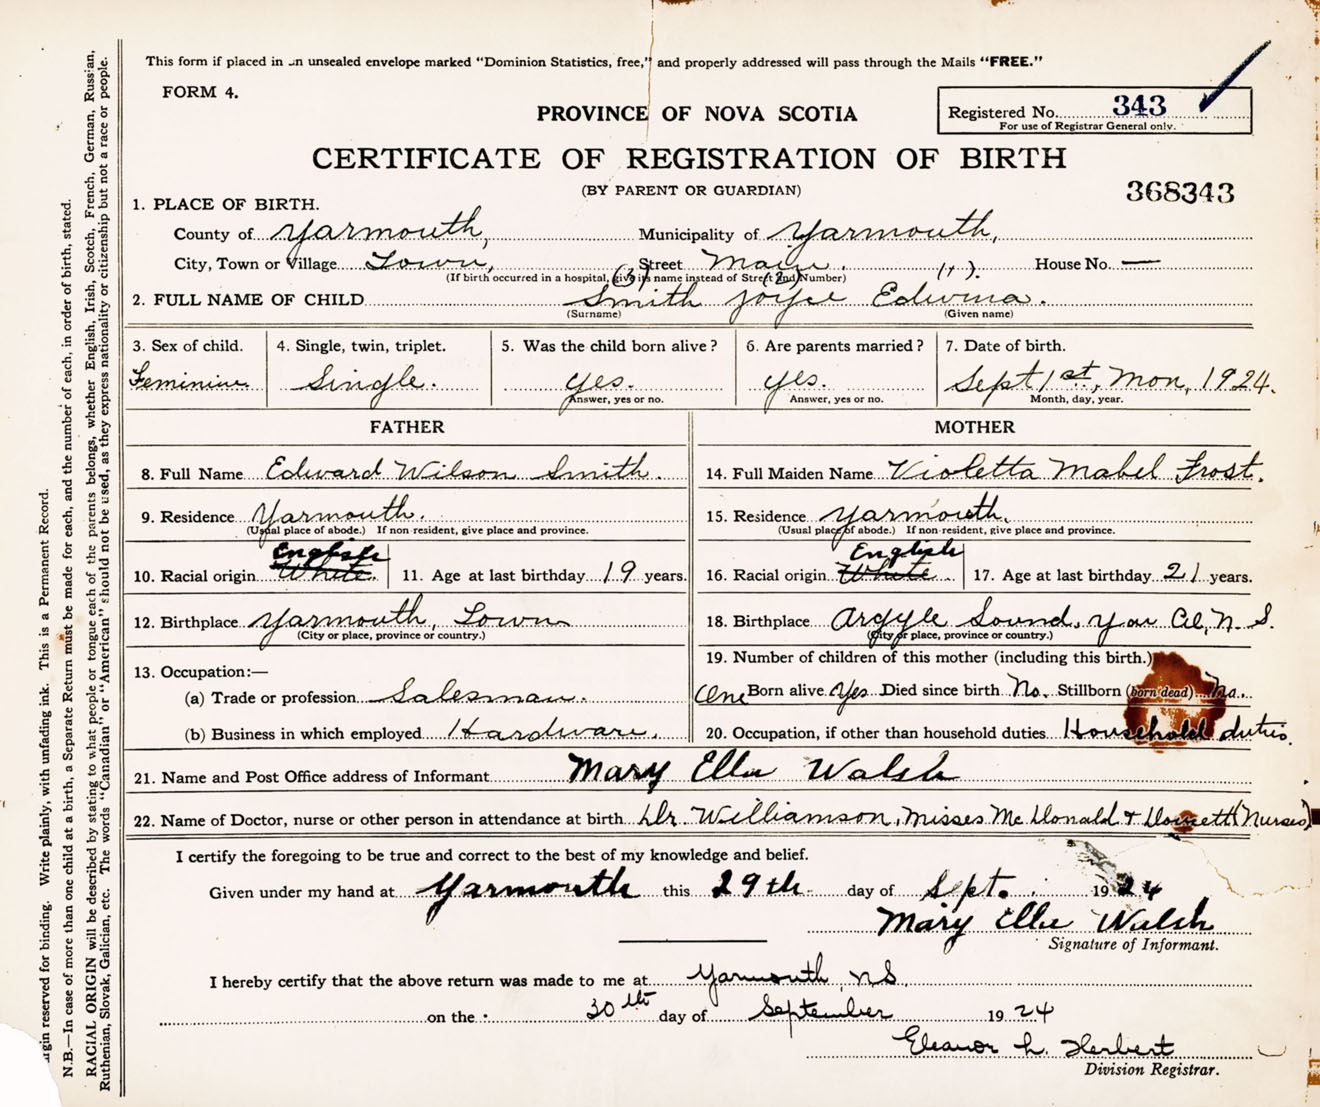 This form if placed in an unsealed envelope marked "Dominion Statistics, free," and properly addressed will pass through the Mails "FREE."
FORM 4.
PROVINCE OF NOVA SCOTIA
Registered No. 343
For use of Registrar General only.
CERTIFICATE OF REGISTRATION OF BIRTH
(BY PARENT OR GUARDIAN)
368343
1. PLACE OF BIRTH.
County of Yarmouth, Municipality of Yarmouth,
City, Town or Village Town, Street Main. House No. —
(If birth occurred in a hospital, give its name instead of Street and Number)
(3) (2) (1).
2. FULL NAME OF CHILD Smith Joyce Edwina.
(Surname) (Given name)
3. Sex of child. 4. Single, twin, triplet. 5. Was the child born alive? 6. Are parents married? 7. Date of birth.
Feminine Single. yes. yes. Sept 1st, Mon, 1924.
Answer, yes or no. Answer, yes or no. Month, day, year.
FATHER MOTHER
8. Full Name Edward Wilson Smith. 14. Full Maiden Name Violetta Mabel Frost.
9. Residence Yarmouth. 15. Residence Yarmouth.
(Usual place of abode.) If non-resident, give place and province. (Usual place of abode.) If non-resident, give place and province.
English English
10. Racial origin White. 11. Age at last birthday 19 years. 16. Racial origin White. 17. Age at last birthday 21 years.
12. Birthplace Yarmouth, Town 18. Birthplace Argyle Sound, Yar Co, N. S.
(City or place, province or country.) (City or place, province or country.)
13. Occupation:— 19. Number of children of this mother (including this birth.)
(a) Trade or profession Salesman. One Born alive Yes Died since birth No. Stillborn (born dead) No.
(b) Business in which employed Hardware. 20. Occupation, if other than household duties Household duties.
21. Name and Post Office address of Informant Mary Ella Walsh
22. Name of Doctor, nurse or other person in attendance at birth Dr. Williamson, Misses McDonald & (Nurses)
I certify the foregoing to be true and correct to the best of my knowledge and belief.
Given under my hand at Yarmouth this 29th day of Sept. 1924
Mary Ella Walsh
Signature of Informant.
I hereby certify that the above return was made to me at Yarmouth, N.S.
on the 30th day of September 1924
Eleanor L. Herbert
Division Registrar.
Margin reserved for binding. Write plainly, with unfading ink. This is a Permanent Record.
N.B.—In case of more than one child at a birth, a Separate Return must be made for each, and the number of each, in order of birth, stated.
RACIAL ORIGIN will be described by stating to what people or tongue each of the parents belongs, whether English, Irish, Scotch, French, German, Russian,
Ruthenian, Slovak, Galician, etc. The words "Canadian" or "American" should not be used, as they express nationality or citizenship but not a race or people.